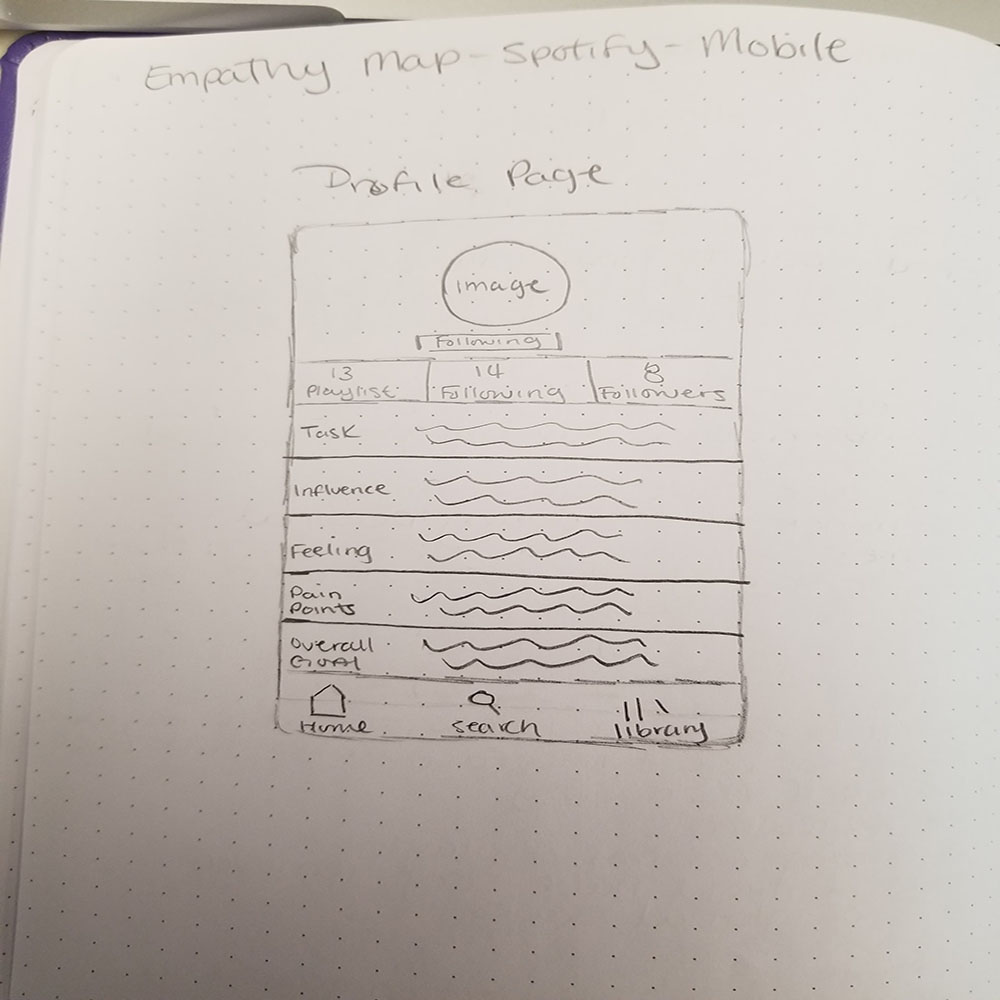 Empathy Map - Spotify - Mobile
Profile Page
image
Following
13 14 8
Playlist Following Followers
Task
Influence
Feeling
Pain
Points
Overall
Goal
Home search library